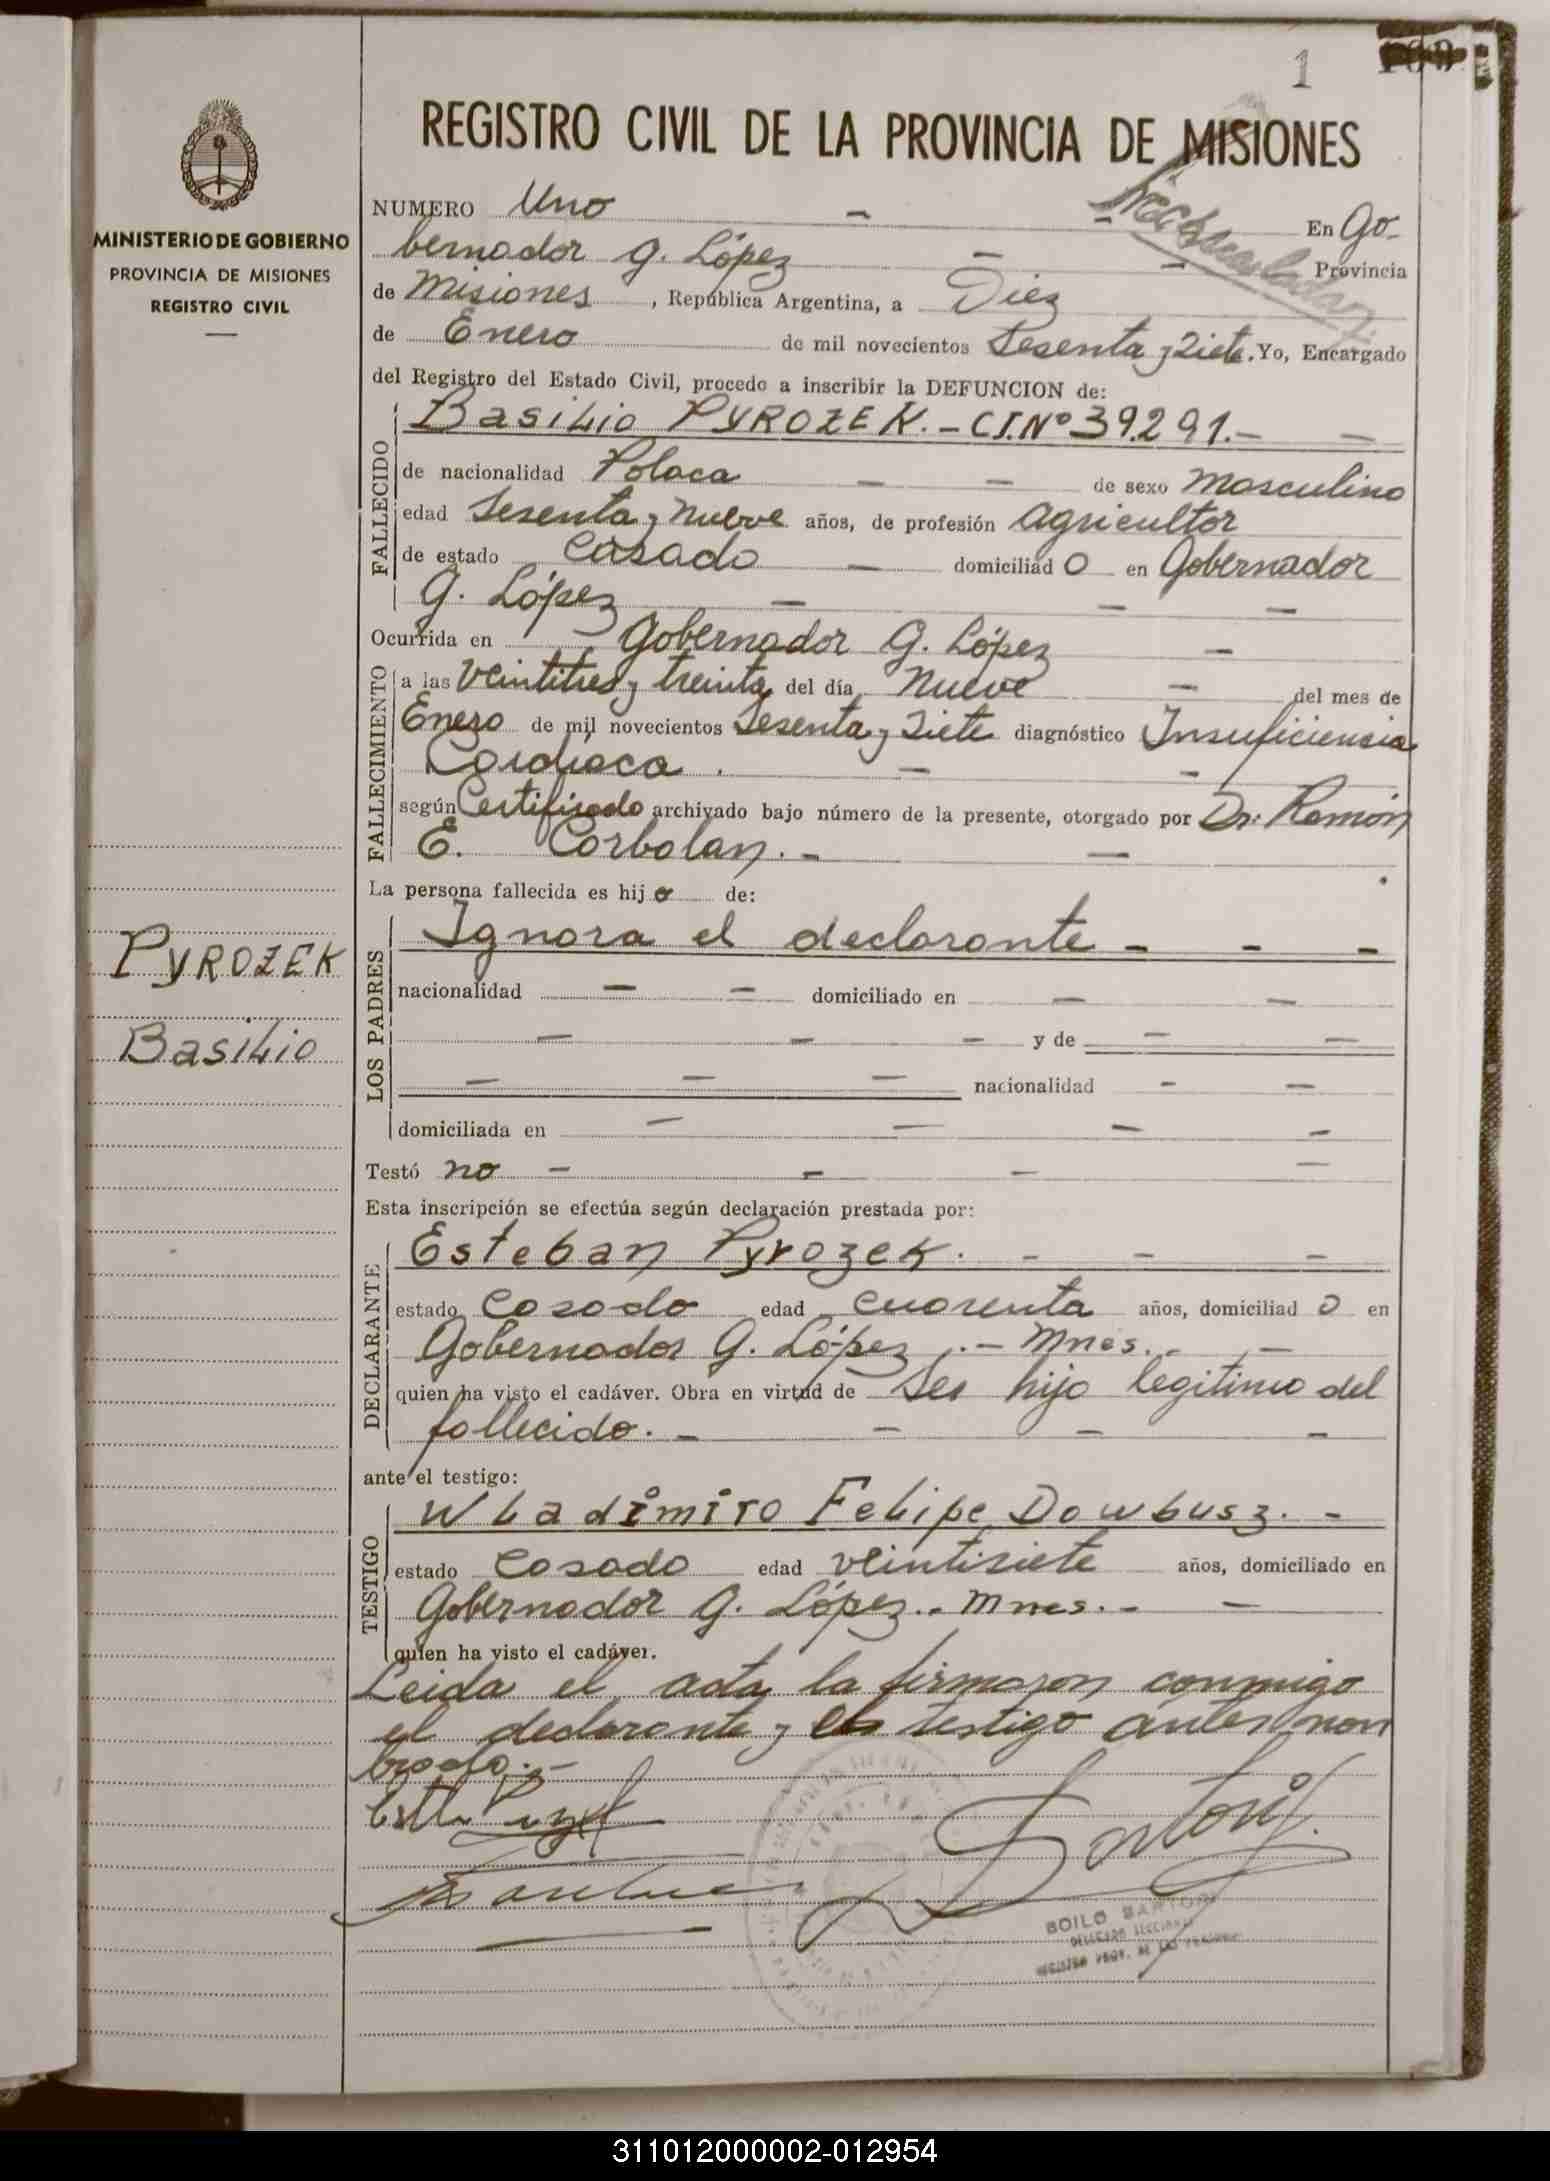 1
REGISTRO CIVIL DE LA PROVINCIA DE MISIONES
MINISTERIO DE GOBIERNO
PROVINCIA DE MISIONES
REGISTRO CIVIL
NUMERO Uno - - En Go-
bernador G. López - - Provincia
de Misiones, República Argentina, a Diez
de Enero de mil novecientos Sesenta y Siete. Yo, Encargado
del Registro del Estado Civil, procedo a inscribir la DEFUNCION de:
FALLECIDO
Basilio PYROZEK. - C.I.Nº 39.291. - -
de nacionalidad Polaca - - de sexo masculino
edad Sesenta y nueve años, de profesión agricultor
de estado Casado - domiciliad o en Gobernador
G. López - - -
Ocurrida en Gobernador G. López -
FALLECIMIENTO
a las veintitres y treinta del día Nueve - del mes de
Enero de mil novecientos Sesenta y Siete diagnóstico Insuficiencia
Cardiaca. - -
según Certificado archivado bajo número de la presente, otorgado por Dr. Ramón
E. Corbolan. - -
La persona fallecida es hijo de:
LOS PADRES
Ignora el declarante - - -
nacionalidad - - domiciliado en - -
- - - y de - -
- - - nacionalidad - -
domiciliada en - - - -
PYROZEK
Basilio
Testó no - - - -
Esta inscripción se efectúa según declaración prestada por:
DECLARANTE
Esteban Pyrozek. - - -
estado Casado edad cuarenta años, domiciliad o en
Gobernador G. López. - Mnes. - -
quien ha visto el cadáver. Obra en virtud de Ser hijo legitimo del
fallecido. - - - -
ante el testigo:
TESTIGO
Wladimiro Felipe Dowbusz. -
estado Casado edad veintisiete años, domiciliado en
Gobernador G. López. - Mnes. - -
quien ha visto el cadáver.
Leida el acta la firmaron conmigo
el declarante y el testigo antes nom
brado. -
311012000002-012954